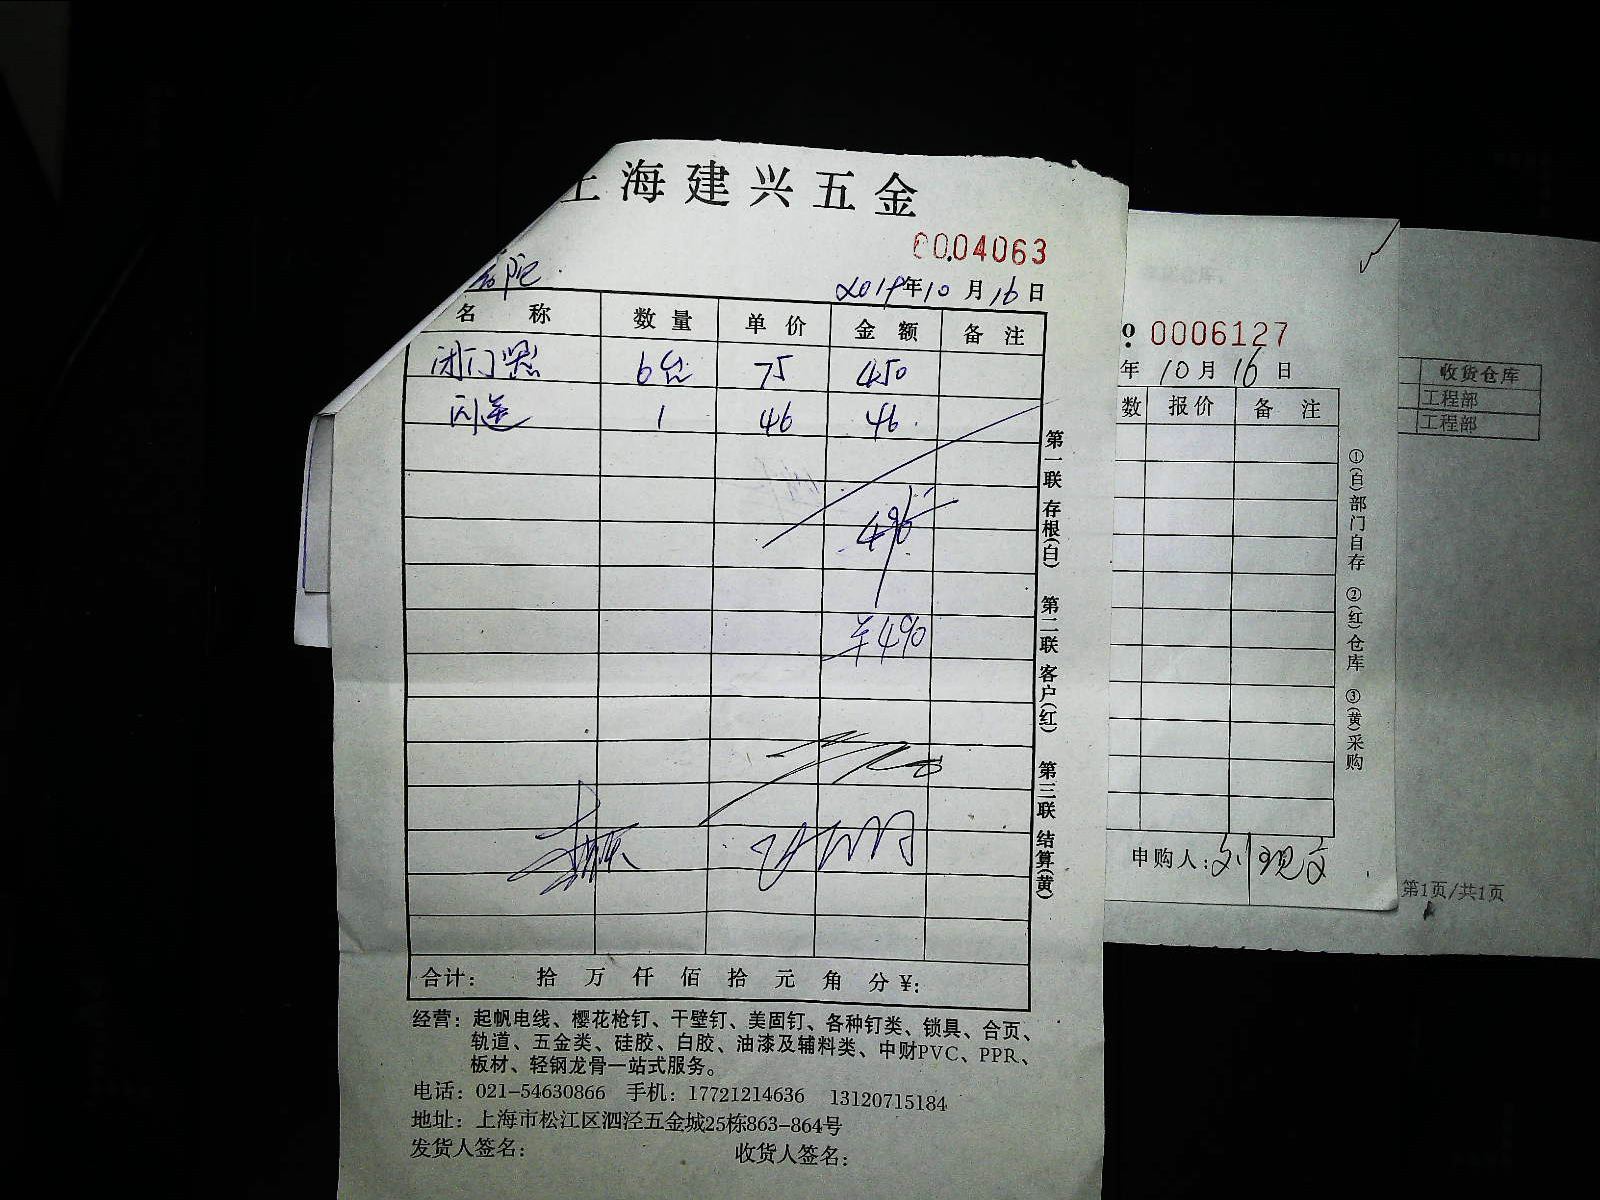 上海建兴五金
0004063
2019年10月16日
名称 数量 单价 金额 备注
闭门器 6台 75 450
闪送 1 46 46
496
¥496
合计： 拾 万 仟 佰 拾 元 角 分 ¥：
经营：起帆电线、樱花枪钉、干壁钉、美固钉、各种钉类、锁具、合页、
轨道、五金类、硅胶、白胶、油漆及辅料类、中财PVC、PPR、
板材、轻钢龙骨一站式服务。
电话：021-54630866 手机：17721214636 13120715184
地址：上海市松江区泗泾五金城25栋863-864号
发货人签名： 收货人签名：
第一联 存根(白) 第二联 客户(红) 第三联 结算(黄)
0006127
年10月16日
数 报价 备注
①(白)部门自存 ②(红)仓库 ③(黄)采购
申购人：刘现文
收货仓库
工程部
工程部
第1页/共1页